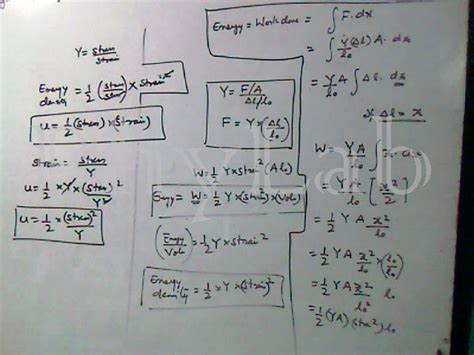 Y = stress/strain
Energy density = 1/2 (stress/strain) × strain²
u = 1/2 (stress) × (strain)
strain = stress/Y
u = 1/2 × Y × (stress)²/Y²
u = 1/2 × (stress)²/Y
Y = (F/A)/(Δl/l₀)
F = Y × (Δl/l₀)
W = 1/2 Y × strain² (A l₀)
Energy = W = 1/2 Y × (strain) × (Vol)
(Energy/Vol) = 1/2 Y × strain²
Energy density = 1/2 × Y × (strain)²
Energy = Work done = ∫ F. dx
= ∫ Y(Δl)/l₀ A. dx
= YA/l₀ ∫ Δl. dx
Δl = x
W = YA/l₀ ∫ x. dx
= Y A/l₀ [x²/2]
= 1/2 YA x²/l₀
= 1/2 YA x²/l₀ × (l₀/l₀)
= 1/2 YA x²/l₀² l₀
= 1/2 (YA) (strain²) l₀